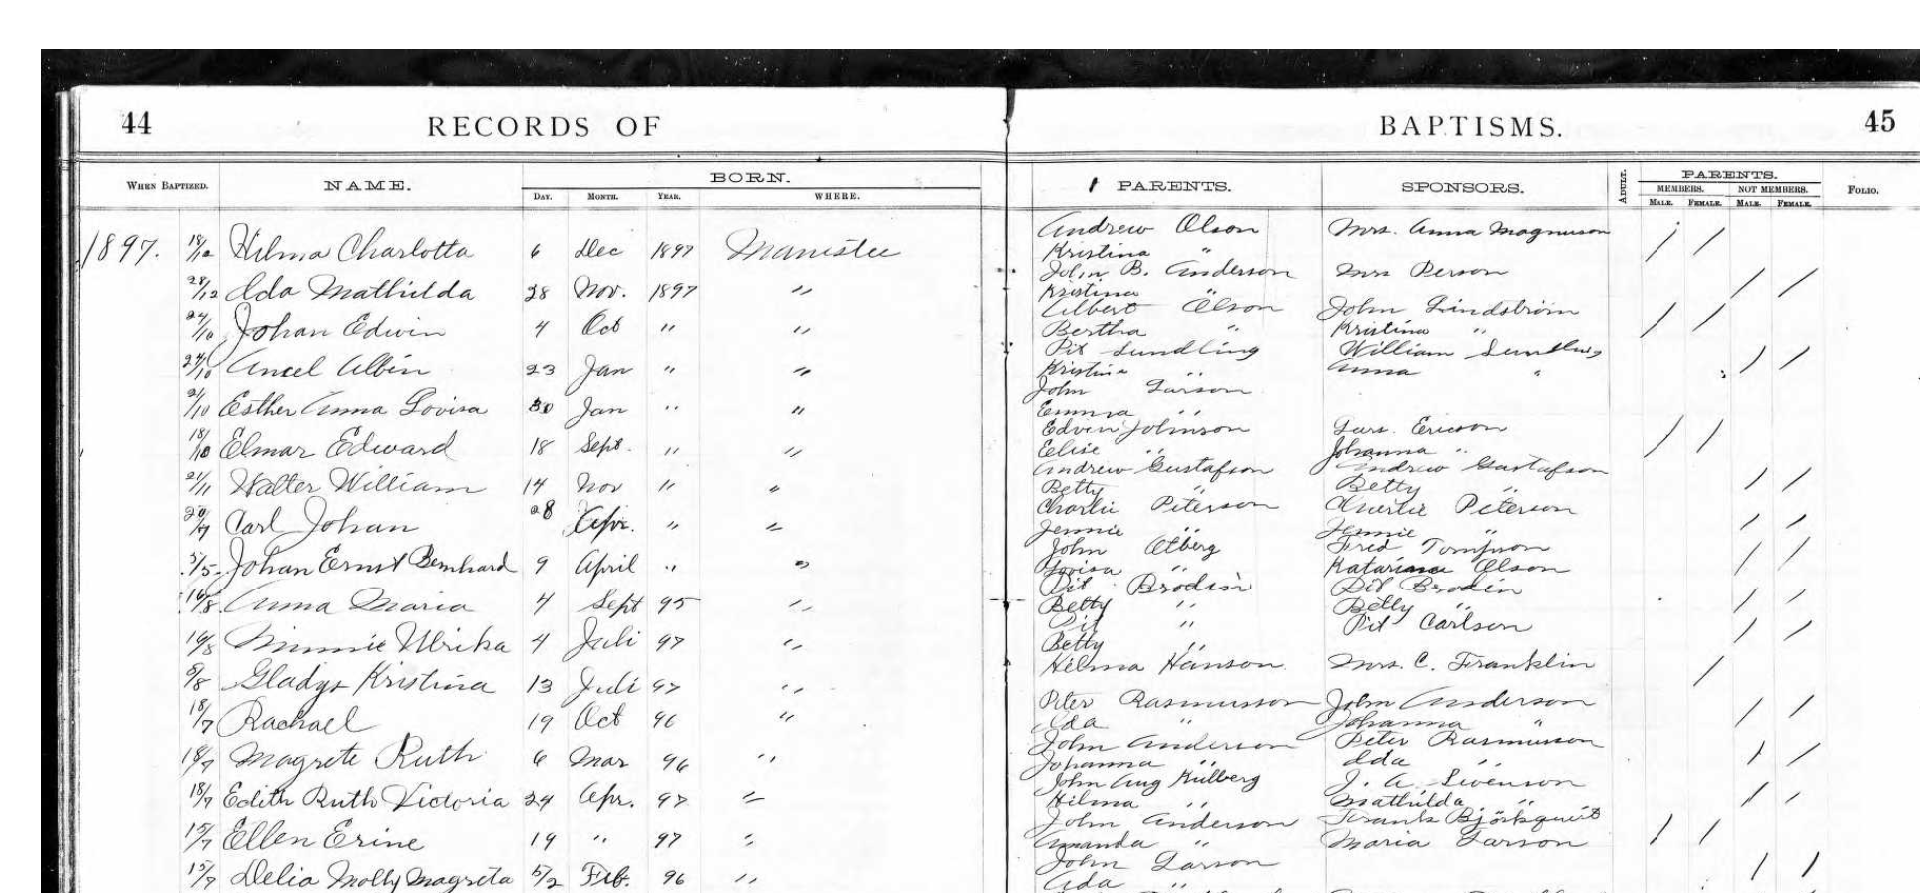 44 RECORDS OF BAPTISMS. 45
WHEN BAPTIZED. NAME. BORN. DAY. MONTH. YEAR. WHERE. PARENTS. SPONSORS. ADULT. PARENTS. MEMBERS. MALE. FEMALE. NOT MEMBERS. MALE. FEMALE. FOLIO.
1897. 18/12 Hilma Charlotta 6 Dec 1897 Manistee Andrew Olson Mrs. Anna Magnuson / /
Kristina "
28/12 Ida Mathilda 28 Nov. 1897 " John B. Anderson Mrs Person / /
Kristina "
24/10 Johan Edwin 4 Oct " " Albert Olson John Lindström / /
Bertha " Kristina "
24/10 Axel Albin 23 Jan " " Pit Sundling William Sundling / /
Kristina " Anna "
Esther Anna Lovisa 30 Jan " " John Larson
Emma "
18/10 Elmar Edward 18 Sept. " " Edven Johnson Lars. Ericson / /
Elise " Johanna "
21/11 Walter William 14 Nov " " Andrew Gustafson Andrew Gustafson / /
Betty " Betty "
Carl Johan 28 Apr. " " Charlie Peterson Charlie Peterson / /
Jennie " Jennie "
5/5 Johan Ernst Bernhard 9 April " " John Fred / /
Lovisa " Katarina Olson
16/8 Anna Maria 4 Sept 95 " Pit Brodin Pit Brodin / /
Betty " Betty "
16/8 Minnie Ulrika 4 Juli 97 " Pit " Pit Carlson / /
Betty "
8/8 Gladys Kristina 13 Juli 97 " Hilma Hanson Mrs. C. Franklin /
18/7 Rachael 19 Oct 96 " Peter Rasmusson John Anderson / /
Ida " Johanna "
18/7 Magrete Ruth 6 Mar 96 " John Anderson Peter Rasmusson / /
Johanna " Ida "
18/7 Edith Ruth Victoria 24 Apr. 97 " John Aug Kulberg J. A. Swenson / /
Hilma " Mathilda "
15/7 Ellen Erine 14 " 97 " John Anderson Frank Björkquist / /
Amanda " Maria Larson
15/7 Delia Molly Magreta 5/2 Feb. 96 " John Larson / /
Ada "